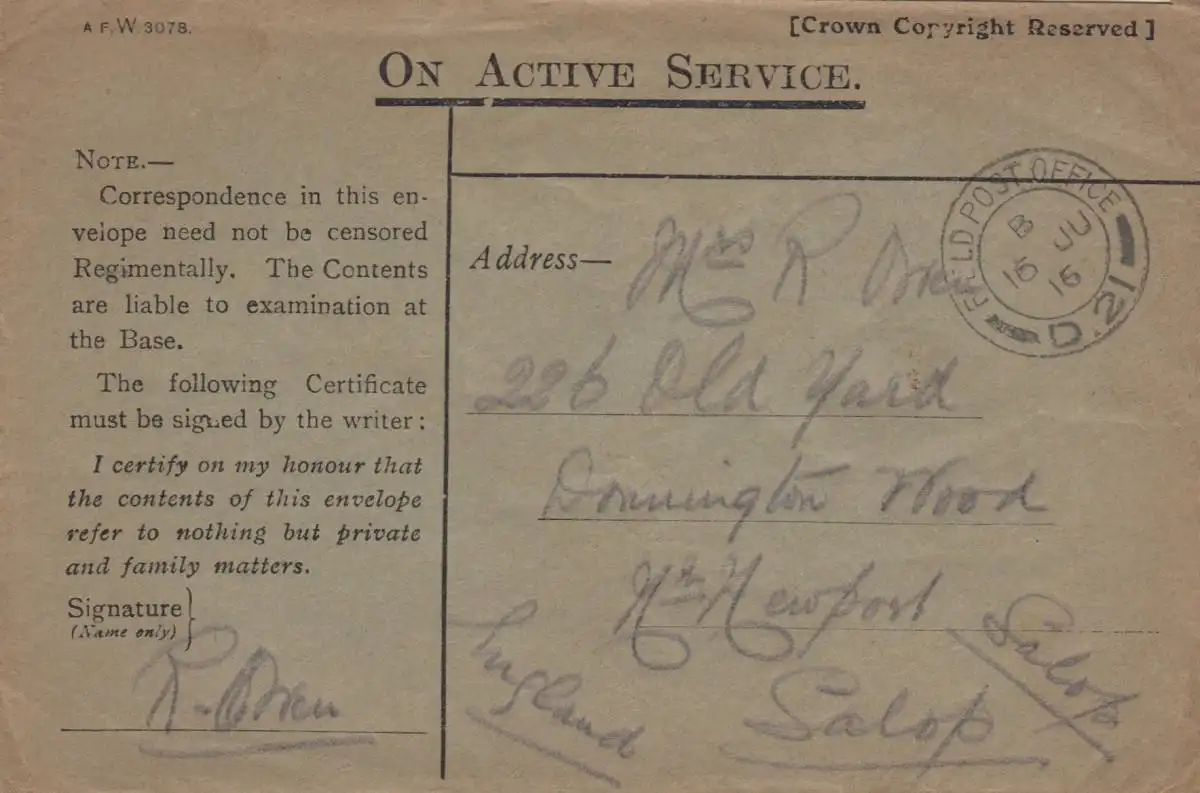 A F, W 3078.
[Crown Copyright Reserved]
ON ACTIVE SERVICE.
NOTE.—
Correspondence in this en-
velope need not be censored
Regimentally. The Contents
are liable to examination at
the Base.
The following Certificate
must be signed by the writer:
I certify on my honour that
the contents of this envelope
refer to nothing but private
and family matters.
Signature
(Name only)
R. Owen
Address—
Mrs R Owen
226 Old Yard
Donnington Wood
Nr Newport
Salop
Salop
England
FIELD POST OFFICE
B JU
16 16
D.21